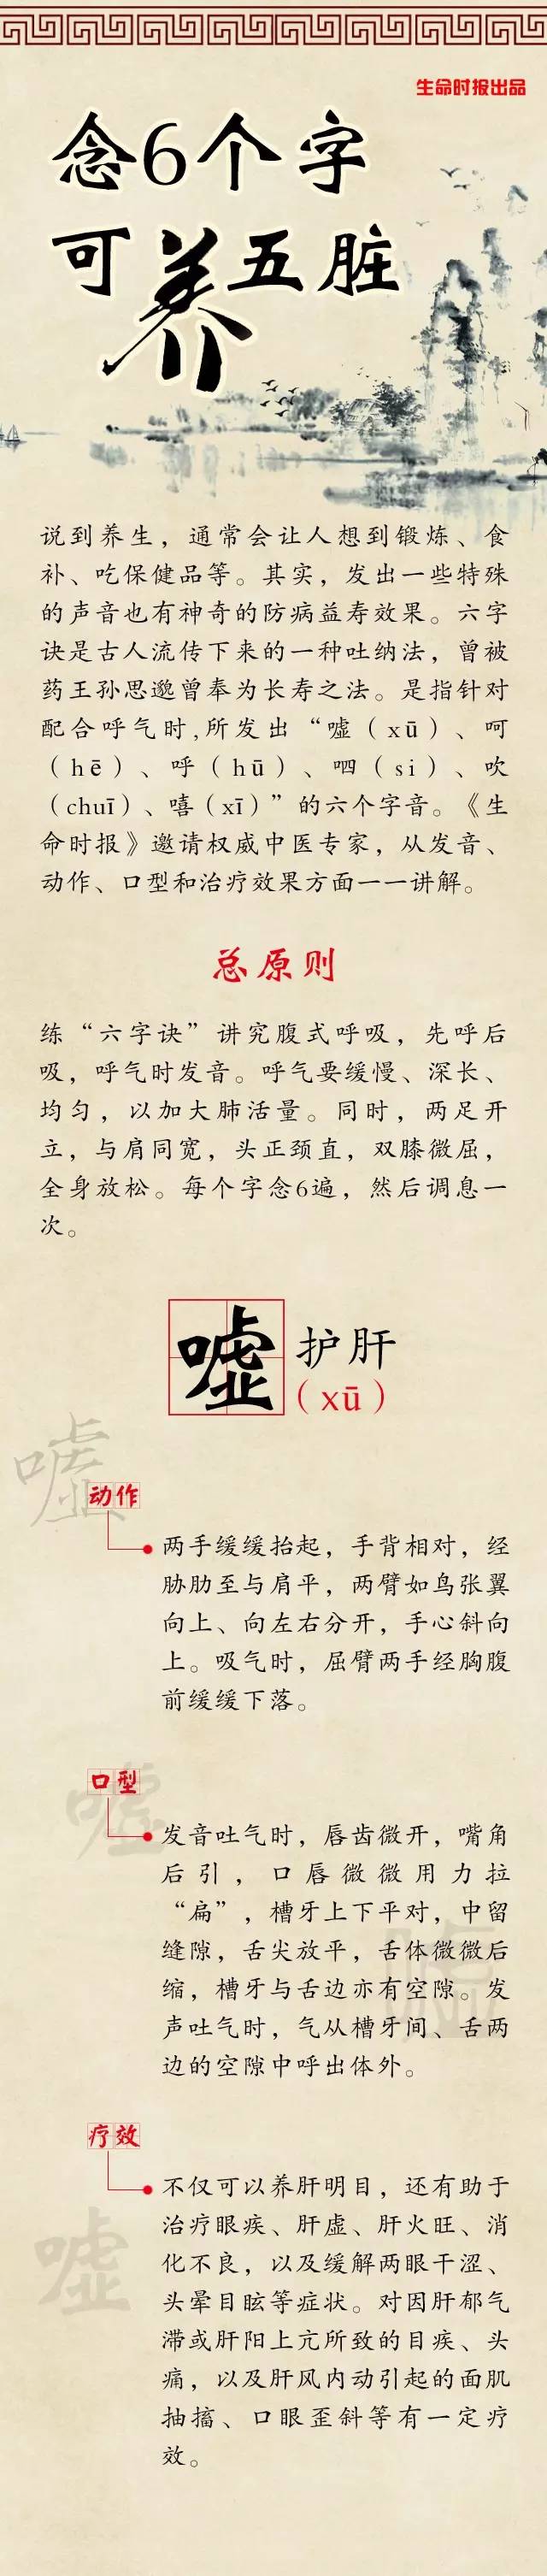 生命时报出品
念6个字
可养五脏
说到养生，通常会让人想到锻炼、食
补、吃保健品等。其实，发出一些特殊
的声音也有神奇的防病益寿效果。六字
诀是古人流传下来的一种吐纳法，曾被
药王孙思邈曾奉为长寿之法。是指针对
配合呼气时,所发出“嘘（xū）、呵
（hē）、呼（hū）、呬（si）、吹
（chuī）、嘻（xī）”的六个字音。《生
命时报》邀请权威中医专家，从发音、
动作、口型和治疗效果方面一一讲解。
总原则
练“六字诀”讲究腹式呼吸，先呼后
吸，呼气时发音。呼气要缓慢、深长、
均匀，以加大肺活量。同时，两足开
立，与肩同宽，头正颈直，双膝微屈，
全身放松。每个字念6遍，然后调息一
次。
嘘 护肝
（xū）
嘘
动作
两手缓缓抬起，手背相对，经
胁肋至与肩平，两臂如鸟张翼
向上、向左右分开，手心斜向
上。吸气时，屈臂两手经胸腹
前缓缓下落。
嘘
口型
发音吐气时，唇齿微开，嘴角
后引，口唇微微用力拉
“扁”，槽牙上下平对，中留
缝隙，舌尖放平，舌体微微后
缩，槽牙与舌边亦有空隙。发
声吐气时，气从槽牙间、舌两
边的空隙中呼出体外。
嘘
疗效
不仅可以养肝明目，还有助于
治疗眼疾、肝虚、肝火旺、消
化不良，以及缓解两眼干涩、
头晕目眩等症状。对因肝郁气
滞或肝阳上亢所致的目疾、头
痛，以及肝风内动引起的面肌
抽搐、口眼歪斜等有一定疗
效。
嘘